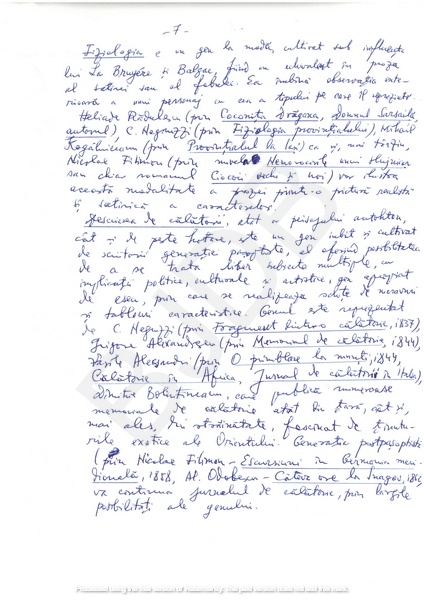 - 7 -
Fiziologia e un gen la modă, cultivat sub influența
lui La Bruyére și Balzac, fiind un echivalent în proză
al satirei sau al fabulei. Ea îmbină observația exte-
rioară a unui personaj cu cea a tipului pe care îl reprezintă.
Heliade Rădulescu (prin Coconița Drăgana, Domnul Sarsailă
autorul), C. Negruzzi (prin Fiziologia provințialului), Mihail
Kogălniceanu (prin Provințialul la Iași) ca și, mai târziu,
Nicolae Filimon (prin nuvela Nenorocirile unui slujnicar
sau chiar romanul Ciocoii vechi și noi) vor ilustra
această modalitate a prozei printr-o pictură realistă
și satirică a caracterelor.
Descrierea de călătorii, atât a peisajului autohton,
cât și de peste hotare, este un gen iubit și cultivat
de scriitorii generației pașoptiste, el oferind posibilitatea
de a se trata liber subiecte multiple, cu
implicații politice, culturale și artistice, gen apropiat
de eseu, prin care se realizează schițe de moravuri
și tablouri caracteristice. Genul este reprezentat
de C. Negruzzi (prin Fragment dintr-o călătorie, 1837),
Grigore Alexandrescu (prin Memorial de călătorie, 1844),
Vasile Alecsandri (prin O primblare la munți, 1844,
Călătorie în Africa, Jurnal de călătorie în Italia),
Dimitrie Bolintineanu, care publică numeroase
memoriale de călătorie atât din țară, cât și,
mai ales, din străinătate, fascinat de ținutu-
rile exotice ale Orientului. Generația postpașoptistă
(prin Nicolae Filimon - Escursiuni în Germania meri-
dională, 1858, Al. Odobescu - Câteva ore la Snagov, 1862)
va continua jurnalul de călătorie, prin largile
posibilități ale genului.